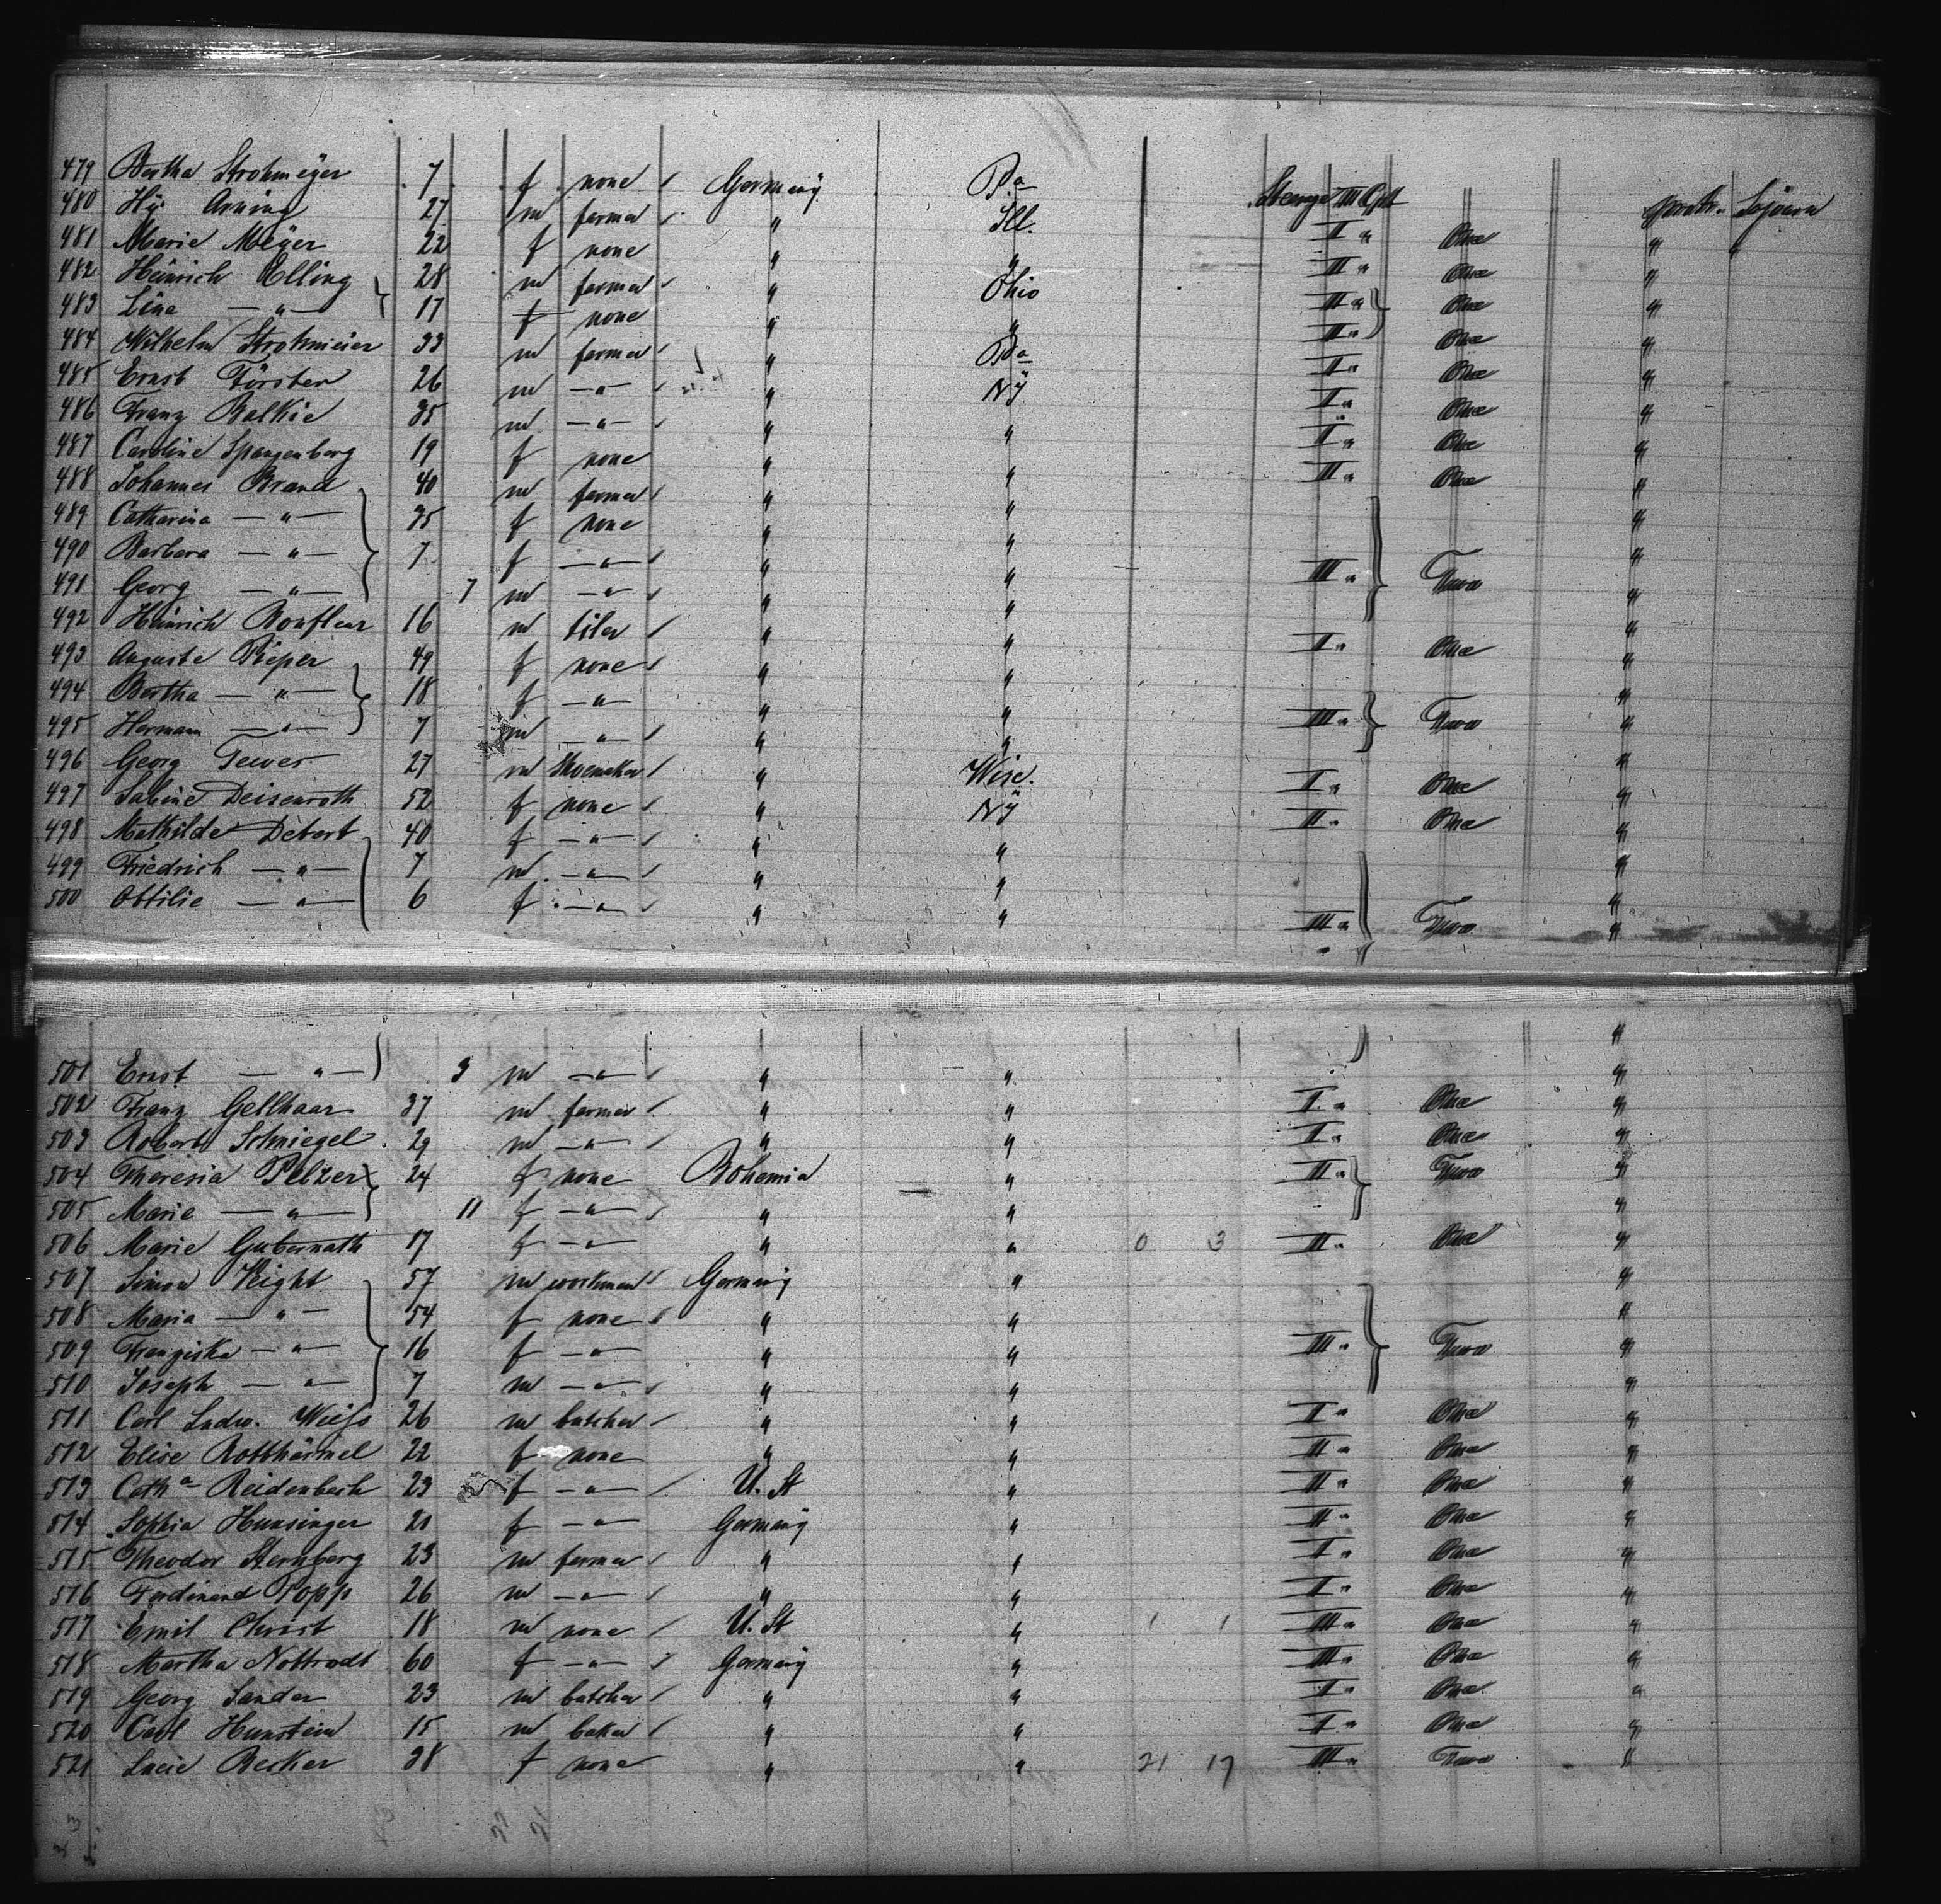 479 Bertha Strohmeÿer 7 f none Germanÿ Pa Steerage III Cpt protr. Sojourn
480 Hÿ. Arning 27 m farmer " Ill. I " One " "
481 Marie Meÿer 22 f none " " III " One "
482 Heinrich Elling 28 m farmer " Ohio III " One "
483 Lina — " — 17 f none " " II " One "
484 Wilhelm Strohmeier 33 m farmer " Pa I " One "
485 Ernst Förster 26 m — " — " NY I " One "
486 Franz Balkie 35 m — " — " " I " One "
487 Caroline Spangenberg 19 f none " " III " One "
488 Johannes Brand 40 m farmer " " "
489 Catharina — " — 35 f none " " "
490 Barbara — " — 7 f — " — " " III " Two "
491 Georg — " — 7 m — " — " " "
492 Heinrich Bonfleur 16 m tiler " " I " One "
493 Auguste Pieper 49 f none " " "
494 Bertha — " — 18 f — " — " " III " Two "
495 Hermann — " — 7 m — " — " " "
496 Georg Tewes 27 m Shoemaker " Wisc. I " One "
497 Sabine Deisenroth 52 f none " NY II " One "
498 Mathilde Debert 40 f — " — " " "
499 Friedrich — " — 7 m — " — " " "
500 Ottilie — " — 6 f — " — " " III " Two "
501 Ernst — " — 9 m — " — " " "
502 Franz Gellhaar 37 m farmer " " I " One "
503 Robert Schniegel 29 m — " — " " I " One "
504 Theresia Pelzer 24 f none Bohemia " III " Two "
505 Marie — " — 11 f — " — " " "
506 Marie Gubernath 17 f — " — " " 0 3 III " One "
507 Simon Veight 57 m workman Germany " "
508 Maria — " — 54 f none " " "
509 Franziska — " — 16 f — " — " " III " Two "
510 Joseph — " — 7 m — " — " " "
511 Carl Ludw. Weiss 26 m butcher " " I " One "
512 Elise Rotthärmel 22 f none " " II " One "
513 Cath a Reidenbach 23 f — " — U. St " II " One "
514 Sophia Hunsinger 21 f — " — Germany " II " One "
515 Theodor Sternberg 23 m farmer " " I " One "
516 Ferdinand Popp 26 m — " — " " I " One "
517 Emil Christ 18 m none U. St " 1 1 III " One "
518 Martha Nottrodt 60 f — " — Germany " III " One "
519 Georg Sander 23 m butcher " " I " One "
520 Carl Hunstein 15 m baker " " I " One "
521 Lucie Becker 38 f none " " 21 17 III " Two "